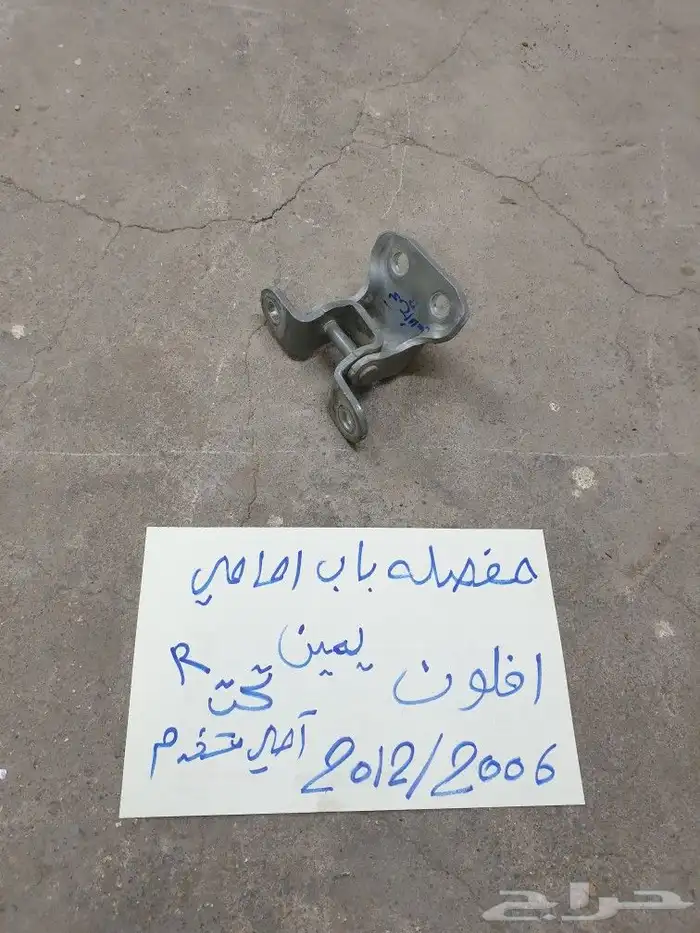 مفصله باب امامي
افلون يمين R
تحت
2012/2006 أصلي مستخدم
حراج